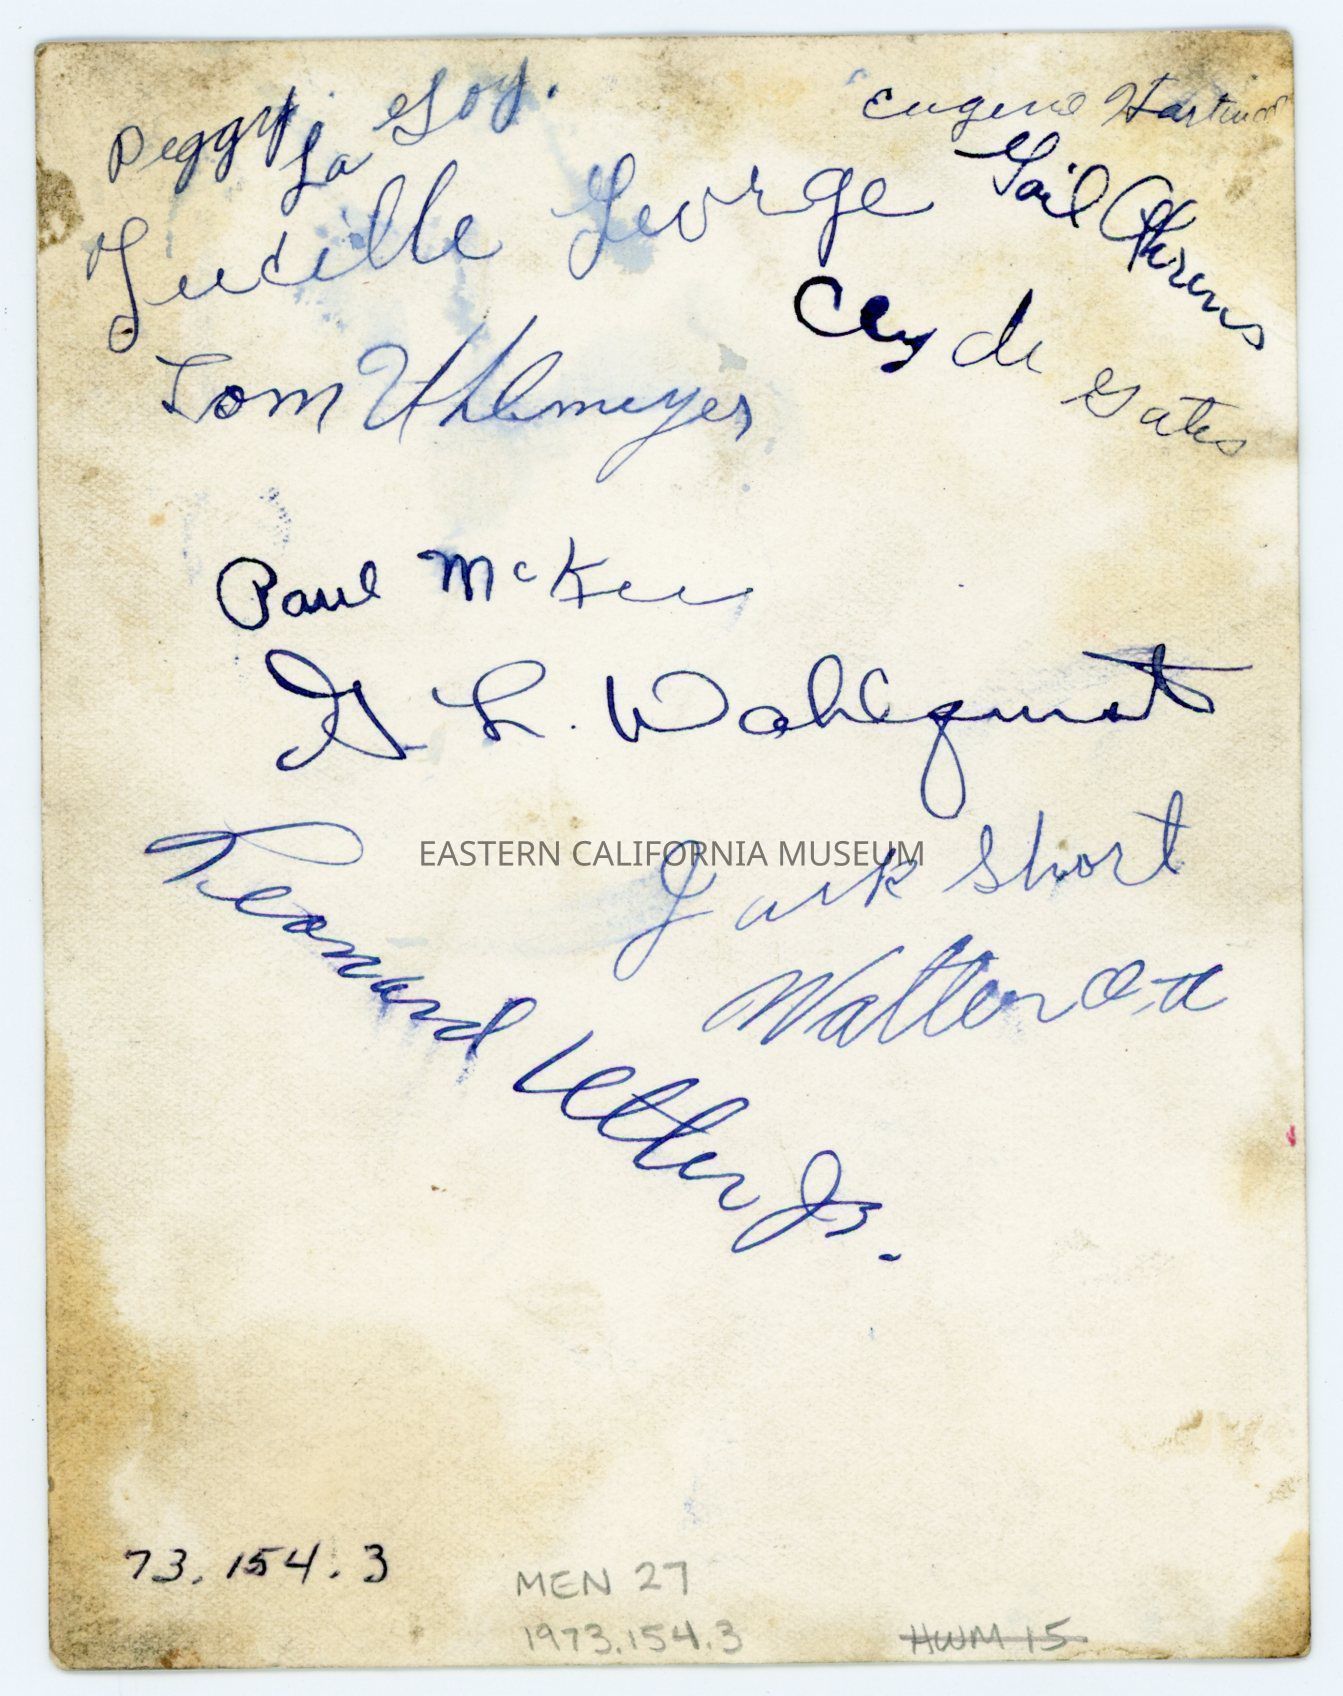 Peggy La Goy.
Eugene
Gail Ahrens
Lucille George
Clyde Gates
Tom Uhlmeyer
Paul McKee
G. L. Wahlquist
EASTERN CALIFORNIA MUSEUM
Jack Short
Leonard Vetter Jr.
Walter
73.154.3
MEN 27
1973.154.3
HWM 15